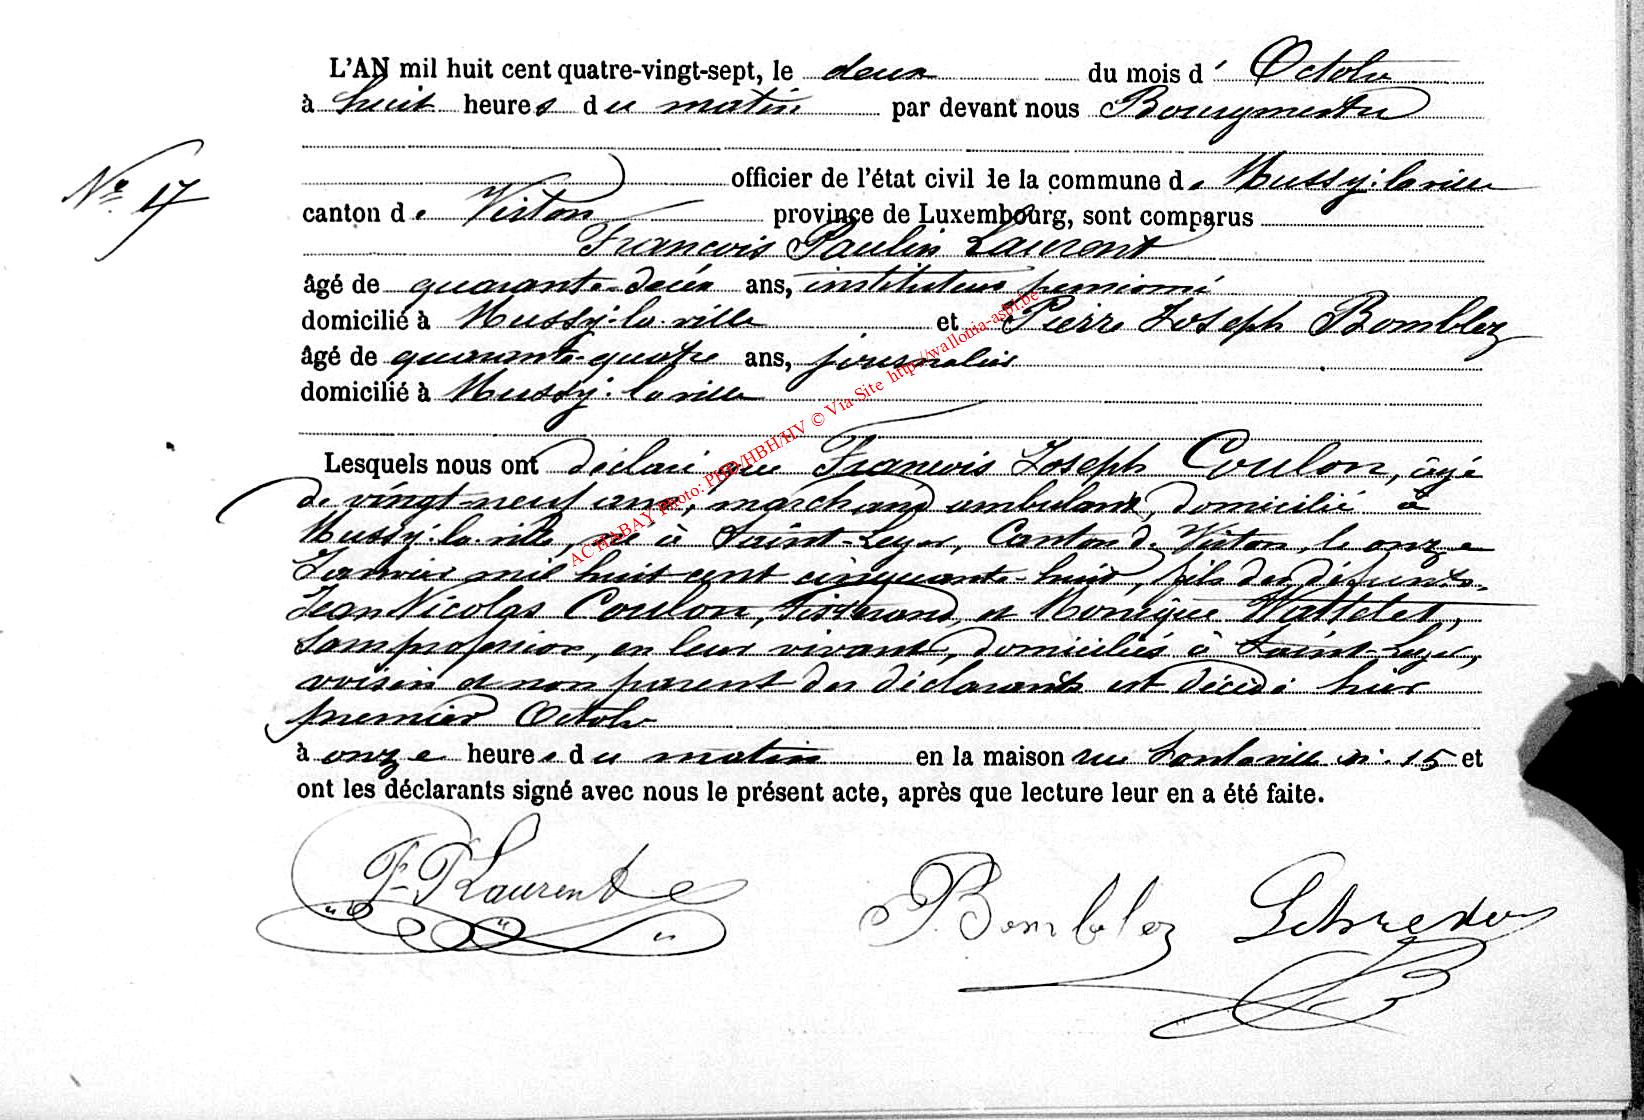 L'AN mil huit cent quatre-vingt-sept, le deux du mois d' Octobre
à huit heures du matin par devant nous Bourgmestre
officier de l'état civil de la commune de Mussy-la-ville
Nº 17
canton de Virton province de Luxembourg, sont comparus
François Paulin Laurent
âgé de quarante-deux ans, instituteur pensionné
domicilié à Mussy-la-ville et Pierre Joseph Bomblez
âgé de quarante-quatre ans, journalier
domicilié à Mussy-la-ville
Lesquels nous ont déclaré que François Joseph Coulon, âgé
de vingt-neuf ans, marchand ambulant, domicilié à
Mussy-la-ville, né à Saint-Leger, Canton de Virton, le onze
Janvier mil huit cent cinquante-huit, fils des défunts
Jean Nicolas Coulon, tisserand, et Monique Wattelet,
sans profession, en leur vivant, domiciliés à Saint-Leger,
voisin et non parent des déclarants est décédé hier
premier Octobre
à onze heures du matin en la maison rue nº 15 et
ont les déclarants signé avec nous le présent acte, après que lecture leur en a été faite.
F-P Laurent
P. Bomblez
AC HABAY Photo: PHD/HBH/HV © Via Site http://wallonia-asbl.be